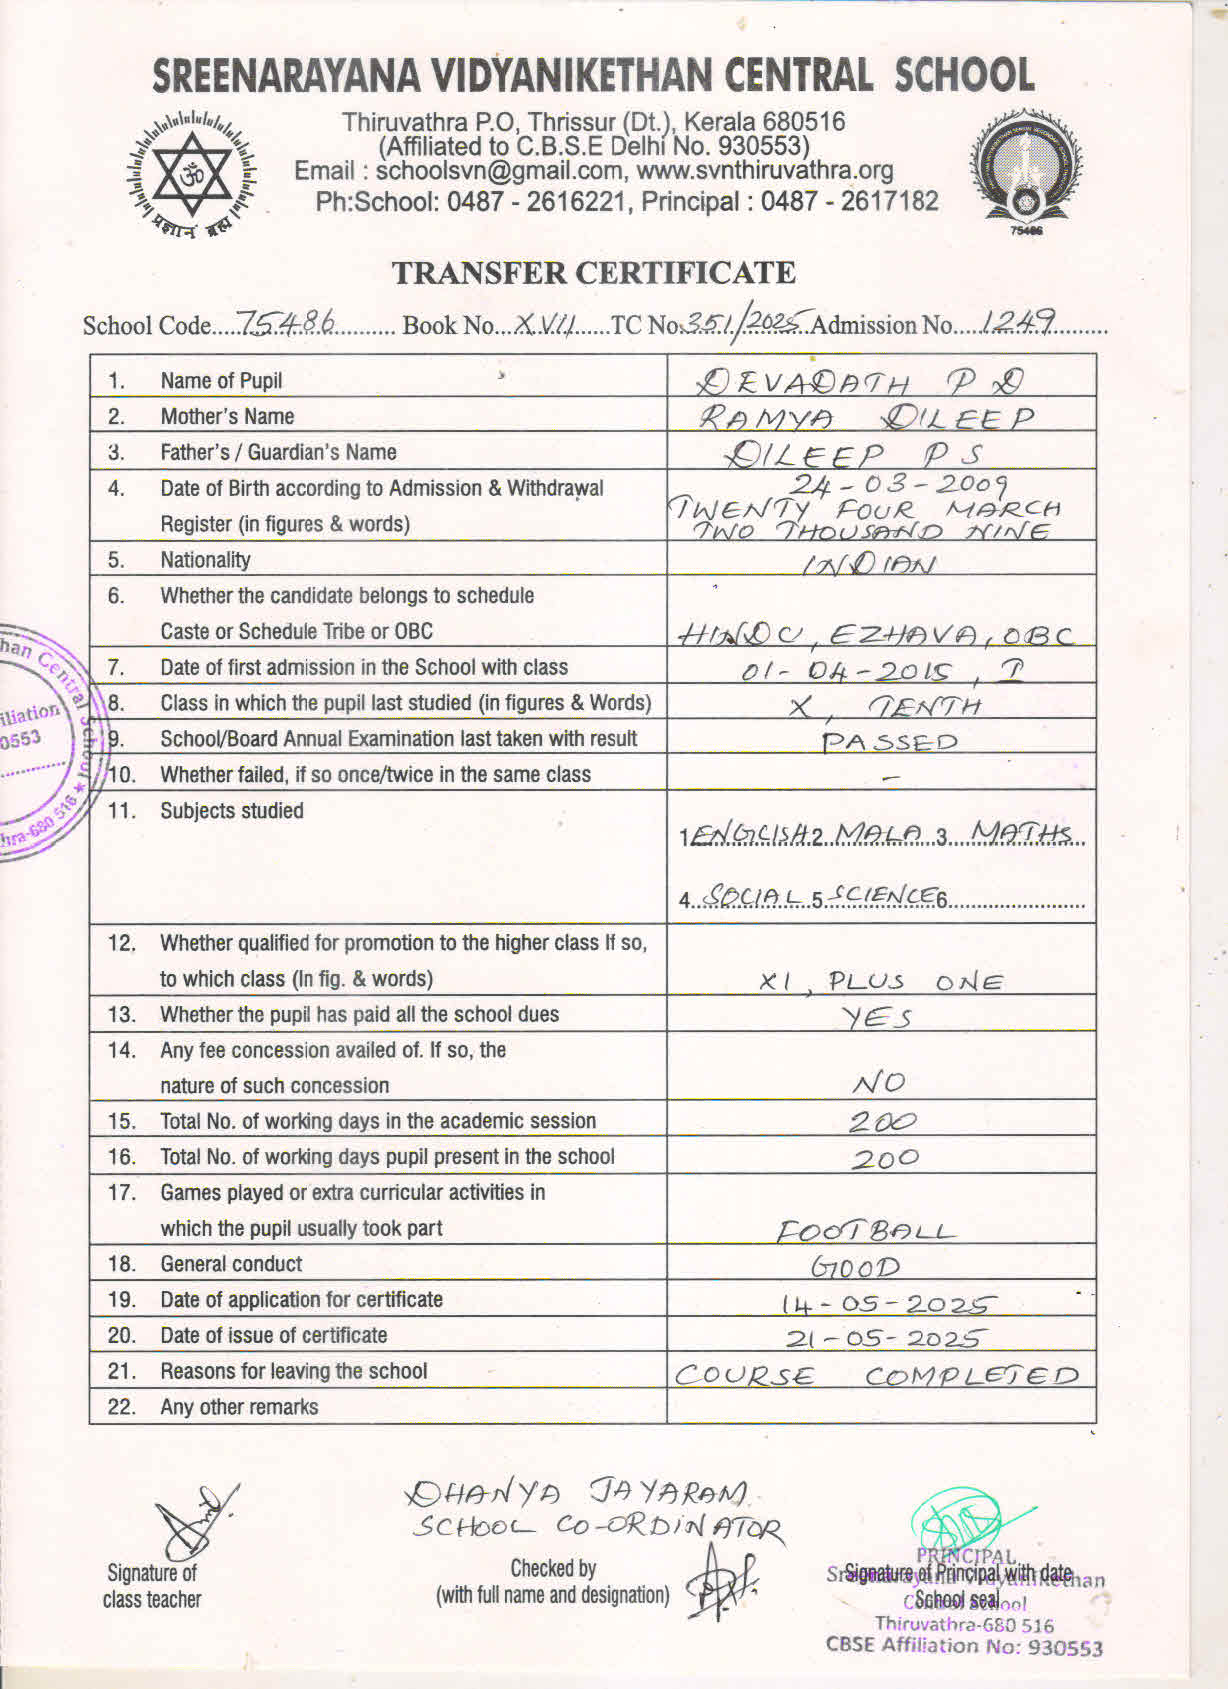 SREENARAYANA VIDYANIKETHAN CENTRAL SCHOOL
Thiruvathra P.O, Thrissur (Dt.), Kerala 680516
(Affiliated to C.B.S.E Delhi No. 930553)
Email : schoolsvn@gmail.com, www.svnthiruvathra.org
Ph:School: 0487 - 2616221, Principal : 0487 - 2617182
प्रज्ञानं ब्रह्म
75486
TRANSFER CERTIFICATE
School Code.....75486.......... Book No...XVII......TC No.351/2025..Admission No.....1249.........
1. Name of Pupil DEVADATH P D
2. Mother's Name RAMYA DILEEP
3. Father's / Guardian's Name DILEEP P S
4. Date of Birth according to Admission & Withdrawal 24-03-2009
Register (in figures & words) TWENTY FOUR MARCH
TWO THOUSAND NINE
5. Nationality INDIAN
6. Whether the candidate belongs to schedule
Caste or Schedule Tribe or OBC HINDU, EZHAVA, OBC
7. Date of first admission in the School with class 01-04-2015, I
8. Class in which the pupil last studied (in figures & Words) X, TENTH
9. School/Board Annual Examination last taken with result PASSED
10. Whether failed, if so once/twice in the same class –
11. Subjects studied
1 ENGLISH 2 MALA 3 MATHS
4 SOCIAL 5 SCIENCE 6
12. Whether qualified for promotion to the higher class If so,
to which class (In fig. & words) XI, PLUS ONE
13. Whether the pupil has paid all the school dues YES
14. Any fee concession availed of. If so, the
nature of such concession NO
15. Total No. of working days in the academic session 200
16. Total No. of working days pupil present in the school 200
17. Games played or extra curricular activities in
which the pupil usually took part FOOTBALL
18. General conduct GOOD
19. Date of application for certificate 14-05-2025
20. Date of issue of certificate 21-05-2025
21. Reasons for leaving the school COURSE COMPLETED
22. Any other remarks
han Central School
iliation
0553
hra-680 516 ★
DHANYA JAYARAM
SCHOOL CO-ORDINATOR
Signature of
class teacher
Checked by
(with full name and designation)
Signature of Principal with date
School seal
PRINCIPAL
Sreenarayana Vidyanikethan
Central School
Thiruvathra-680 516
CBSE Affiliation No: 930553